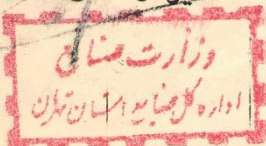 وزارت صنایع
اداره کل صنایع استان تهران